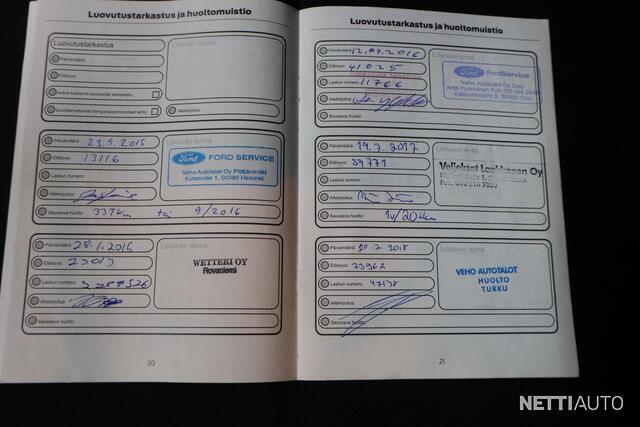 Luovutustarkastus ja huoltomuistio
Luovutustarkastus
Liikkeen leima
Päivämäärä:
Etäisyys:
Allekirjoitus:
Päivämäärä: 23.9.2015
Liikkeen leima
Etäisyys: 13116
Ford FORD SERVICE
Laskun numero:
Veho Autotalot Oy Pitäjänmäki
Kutomotie 1, 00380 Helsinki
Allekirjoitus:
Seuraava huolto: 33 Tkm tai 9/2016
Päivämäärä: 28.1.2016
Liikkeen leima
Etäisyys: 23013
WETTERI OY
Rovaniemi
Laskun numero:
Allekirjoitus:
Seuraava huolto:
20
Luovutustarkastus ja huoltomuistio
Päivämäärä: 12.07.2016
Liikkeen leima
Etäisyys: 41025
Ford FordService
Laskun numero: 11766
Veho Autotalot Oy Oulu
Allekirjoitus:
Seuraava huolto:
Päivämäärä: 19.7.2017
Liikkeen leima
Etäisyys: 59771
Veljekset Laakkonen Oy
Laskun numero:
Allekirjoitus:
Seuraava huolto: 1v/20tkm
Päivämäärä: 20.7.2018
Liikkeen leima
Etäisyys: 73962
VEHO AUTOTALOT
HUOLTO
TURKU
Laskun numero: 47138
Allekirjoitus:
Seuraava huolto:
21
NETTIAUTO